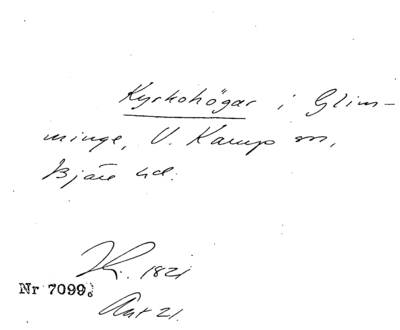 Kyrkohögar i Glim-
minge, V. Karup sn,
Bjäre hd.
1821
Nr 7099.
Ant 21.